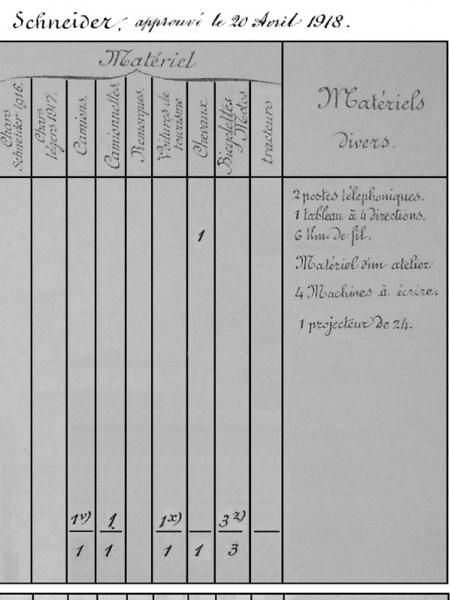 Schneider, approuvé le 20 Avril 1918.
Matériel
Chars Schneider 1916.
Chars légers 1917.
Camions.
Camionnettes
Remorques.
Voitures de tourisme
Chevaux
Bicyclettes
Motos
tracteurs
Matériels
divers.
2 postes téléphoniques.
1 tableau à 4 directions.
1
6 Km. de fil.
Matériel d'un atelier
4 Machines à écrire.
1 projecteur de 24.
1 v) 1 1 x) 3 z)
1 1 1 1 3